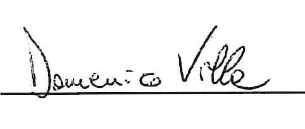 Domenico Villa